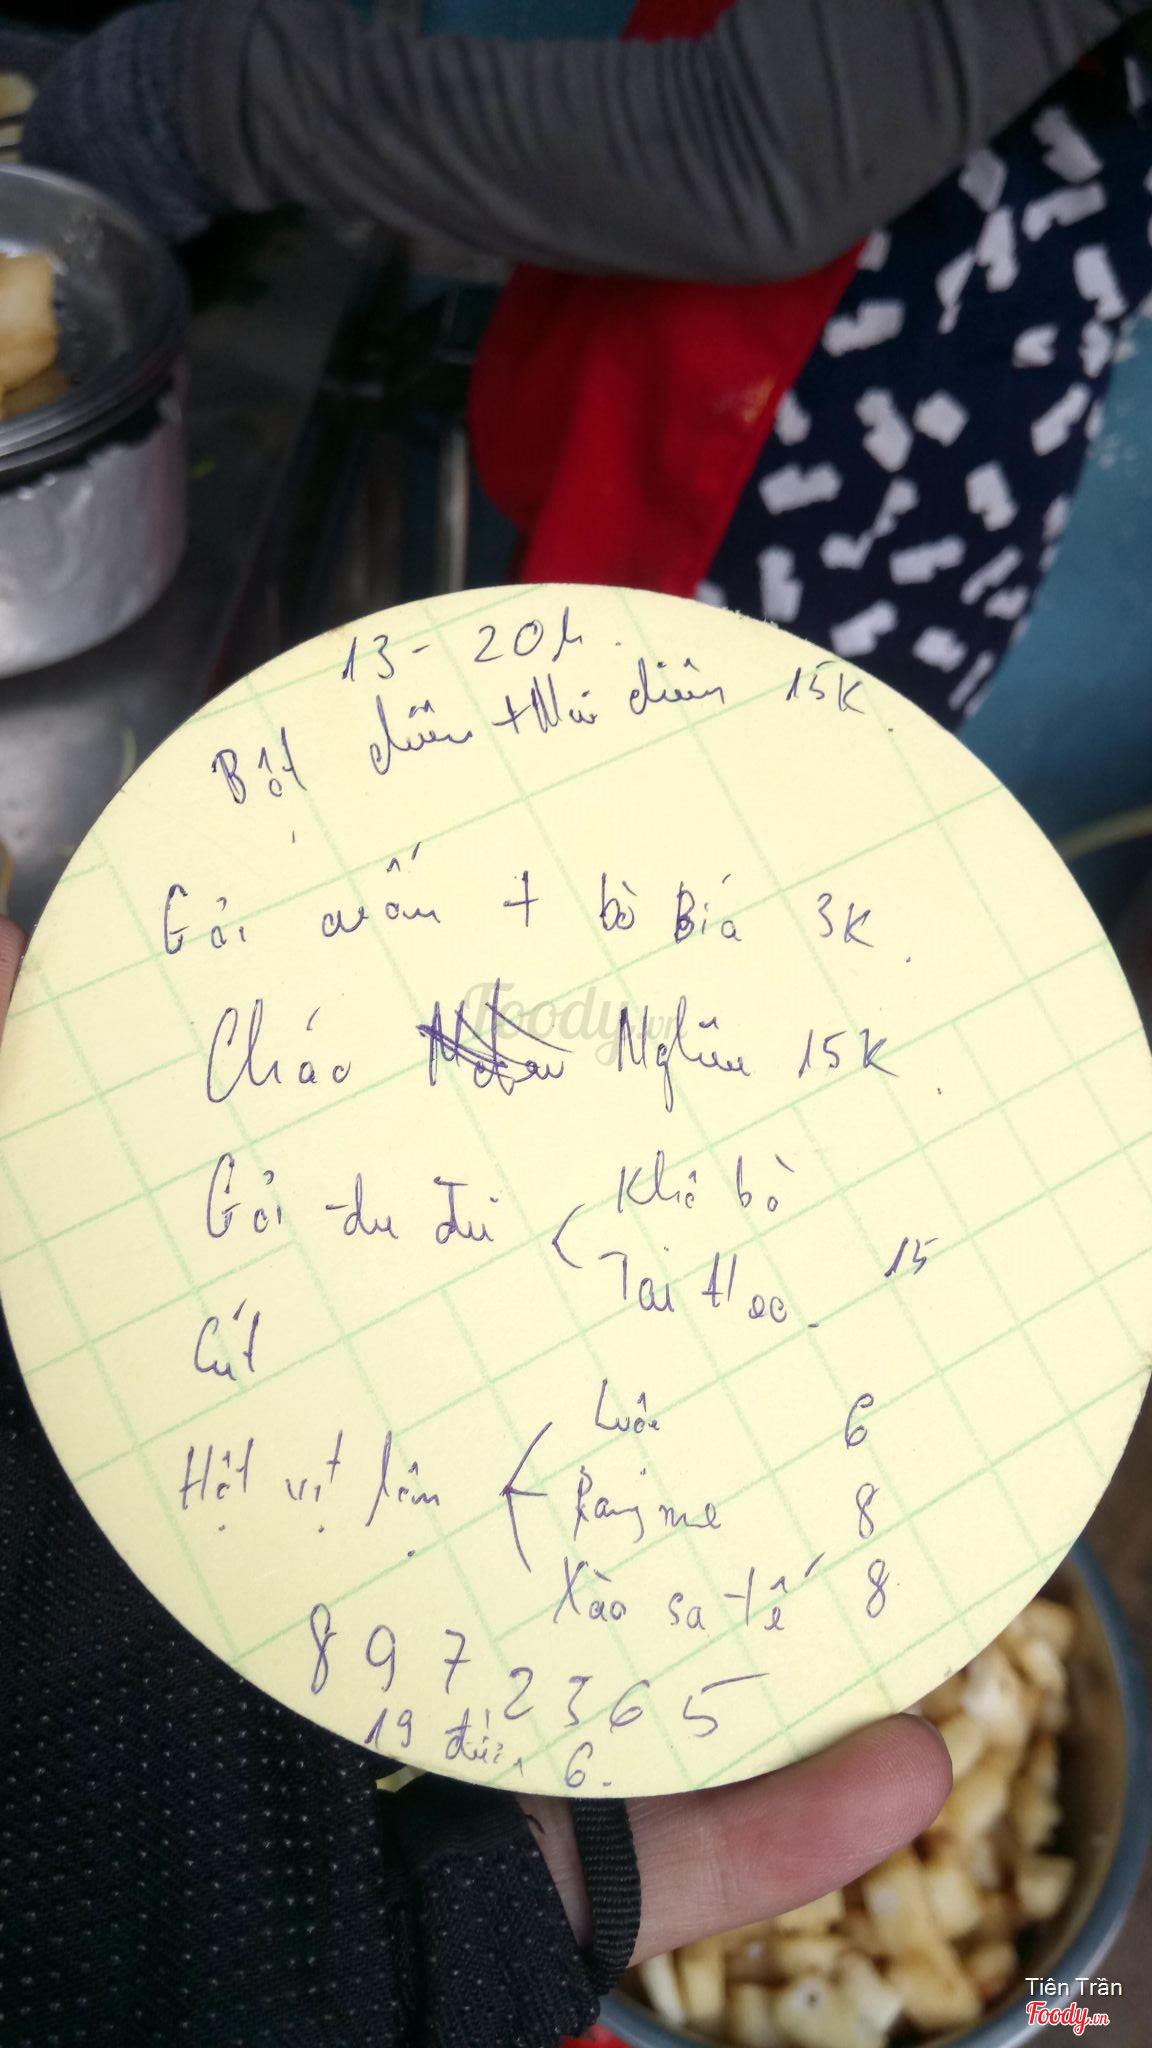 13 - 20h.
Bột chiên + Nui chiên 15K.
Gỏi cuốn + bò Bía 3K.
Cháo Nghêu 15K.
Gỏi đu đủ
Khô bò
Tai Heo. 15
Cút
Hột vịt lộn
Luộc 6
Rang me 8
Xào sa tế 8
897 2365
19
6.
Foody.vn
Tiên Trần
Foody.vn